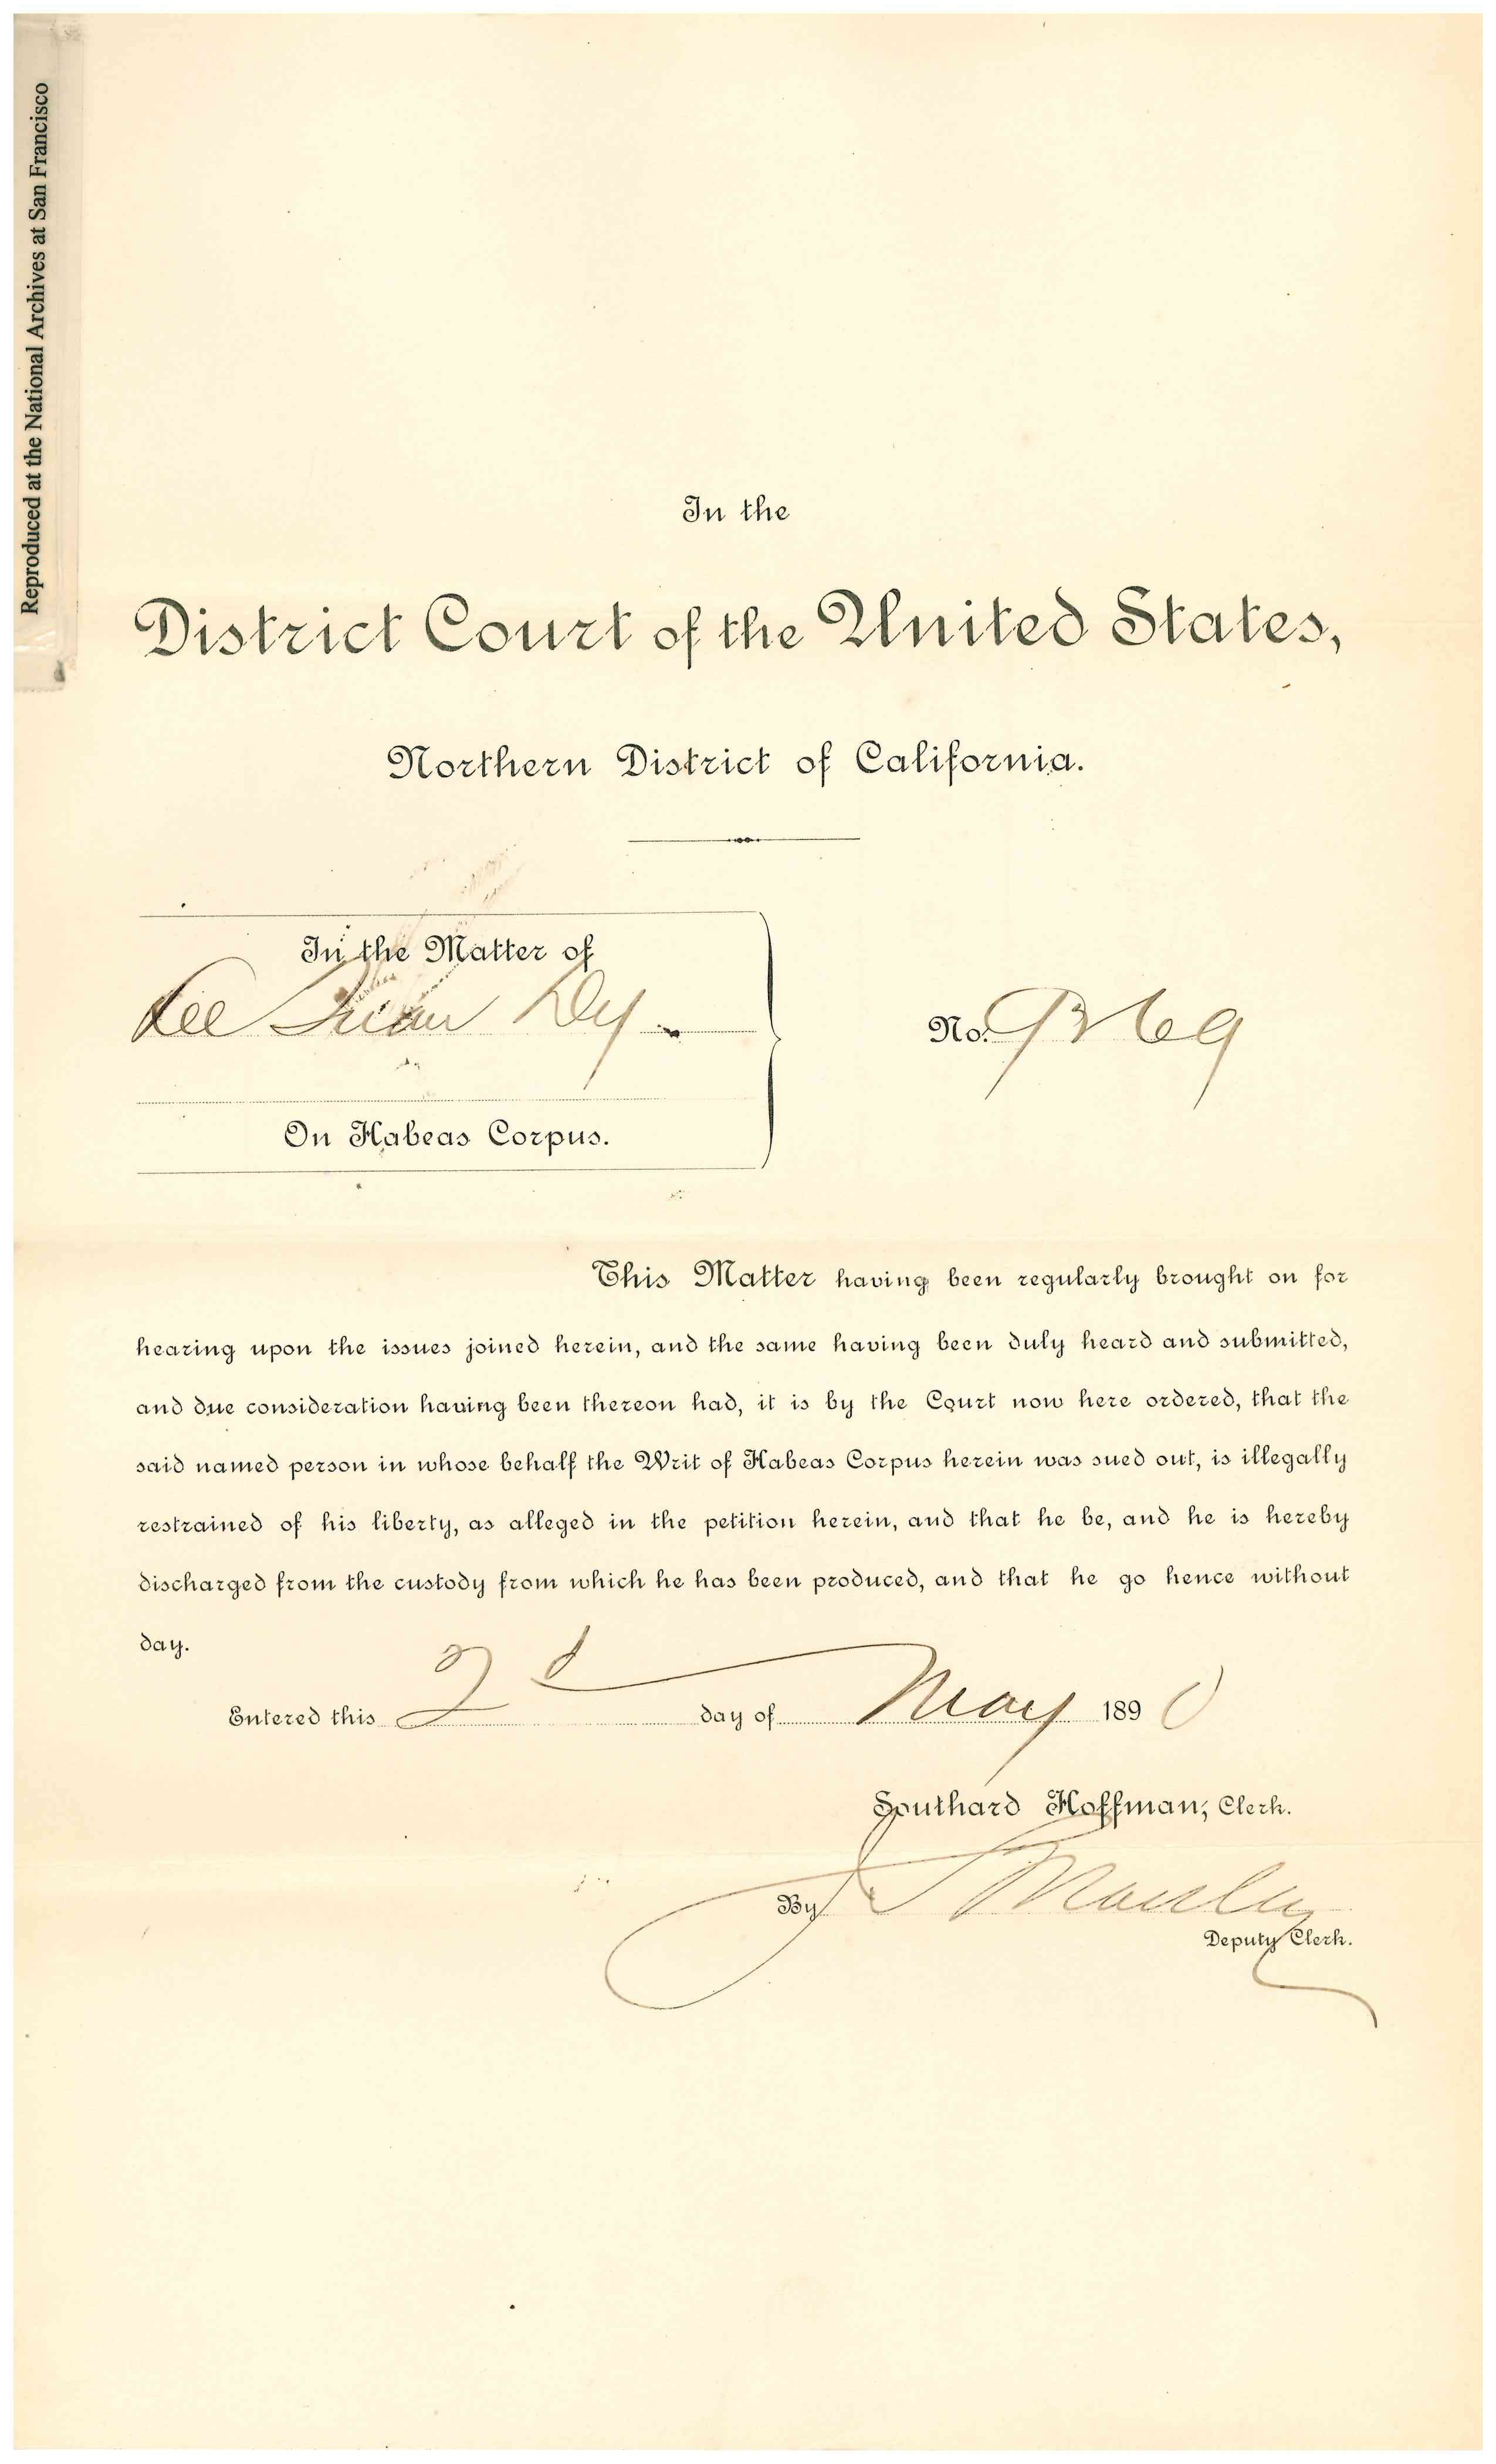 Reproduced at the National Archives at San Francisco
In the
District Court of the United States,
Northern District of California.
In the Matter of
Lee
On Habeas Corpus.
No. 9369
This Matter having been regularly brought on for
hearing upon the issues joined herein, and the same having been duly heard and submitted,
and due consideration having been thereon had, it is by the Court now here ordered, that the
said named person in whose behalf the Writ of Habeas Corpus herein was sued out, is illegally
restrained of his liberty, as alleged in the petition herein, and that he be, and he is hereby
discharged from the custody from which he has been produced, and that he go hence without
day.
Entered this 2d day of May 1890
Southard Hoffman, Clerk.
By
Deputy Clerk.